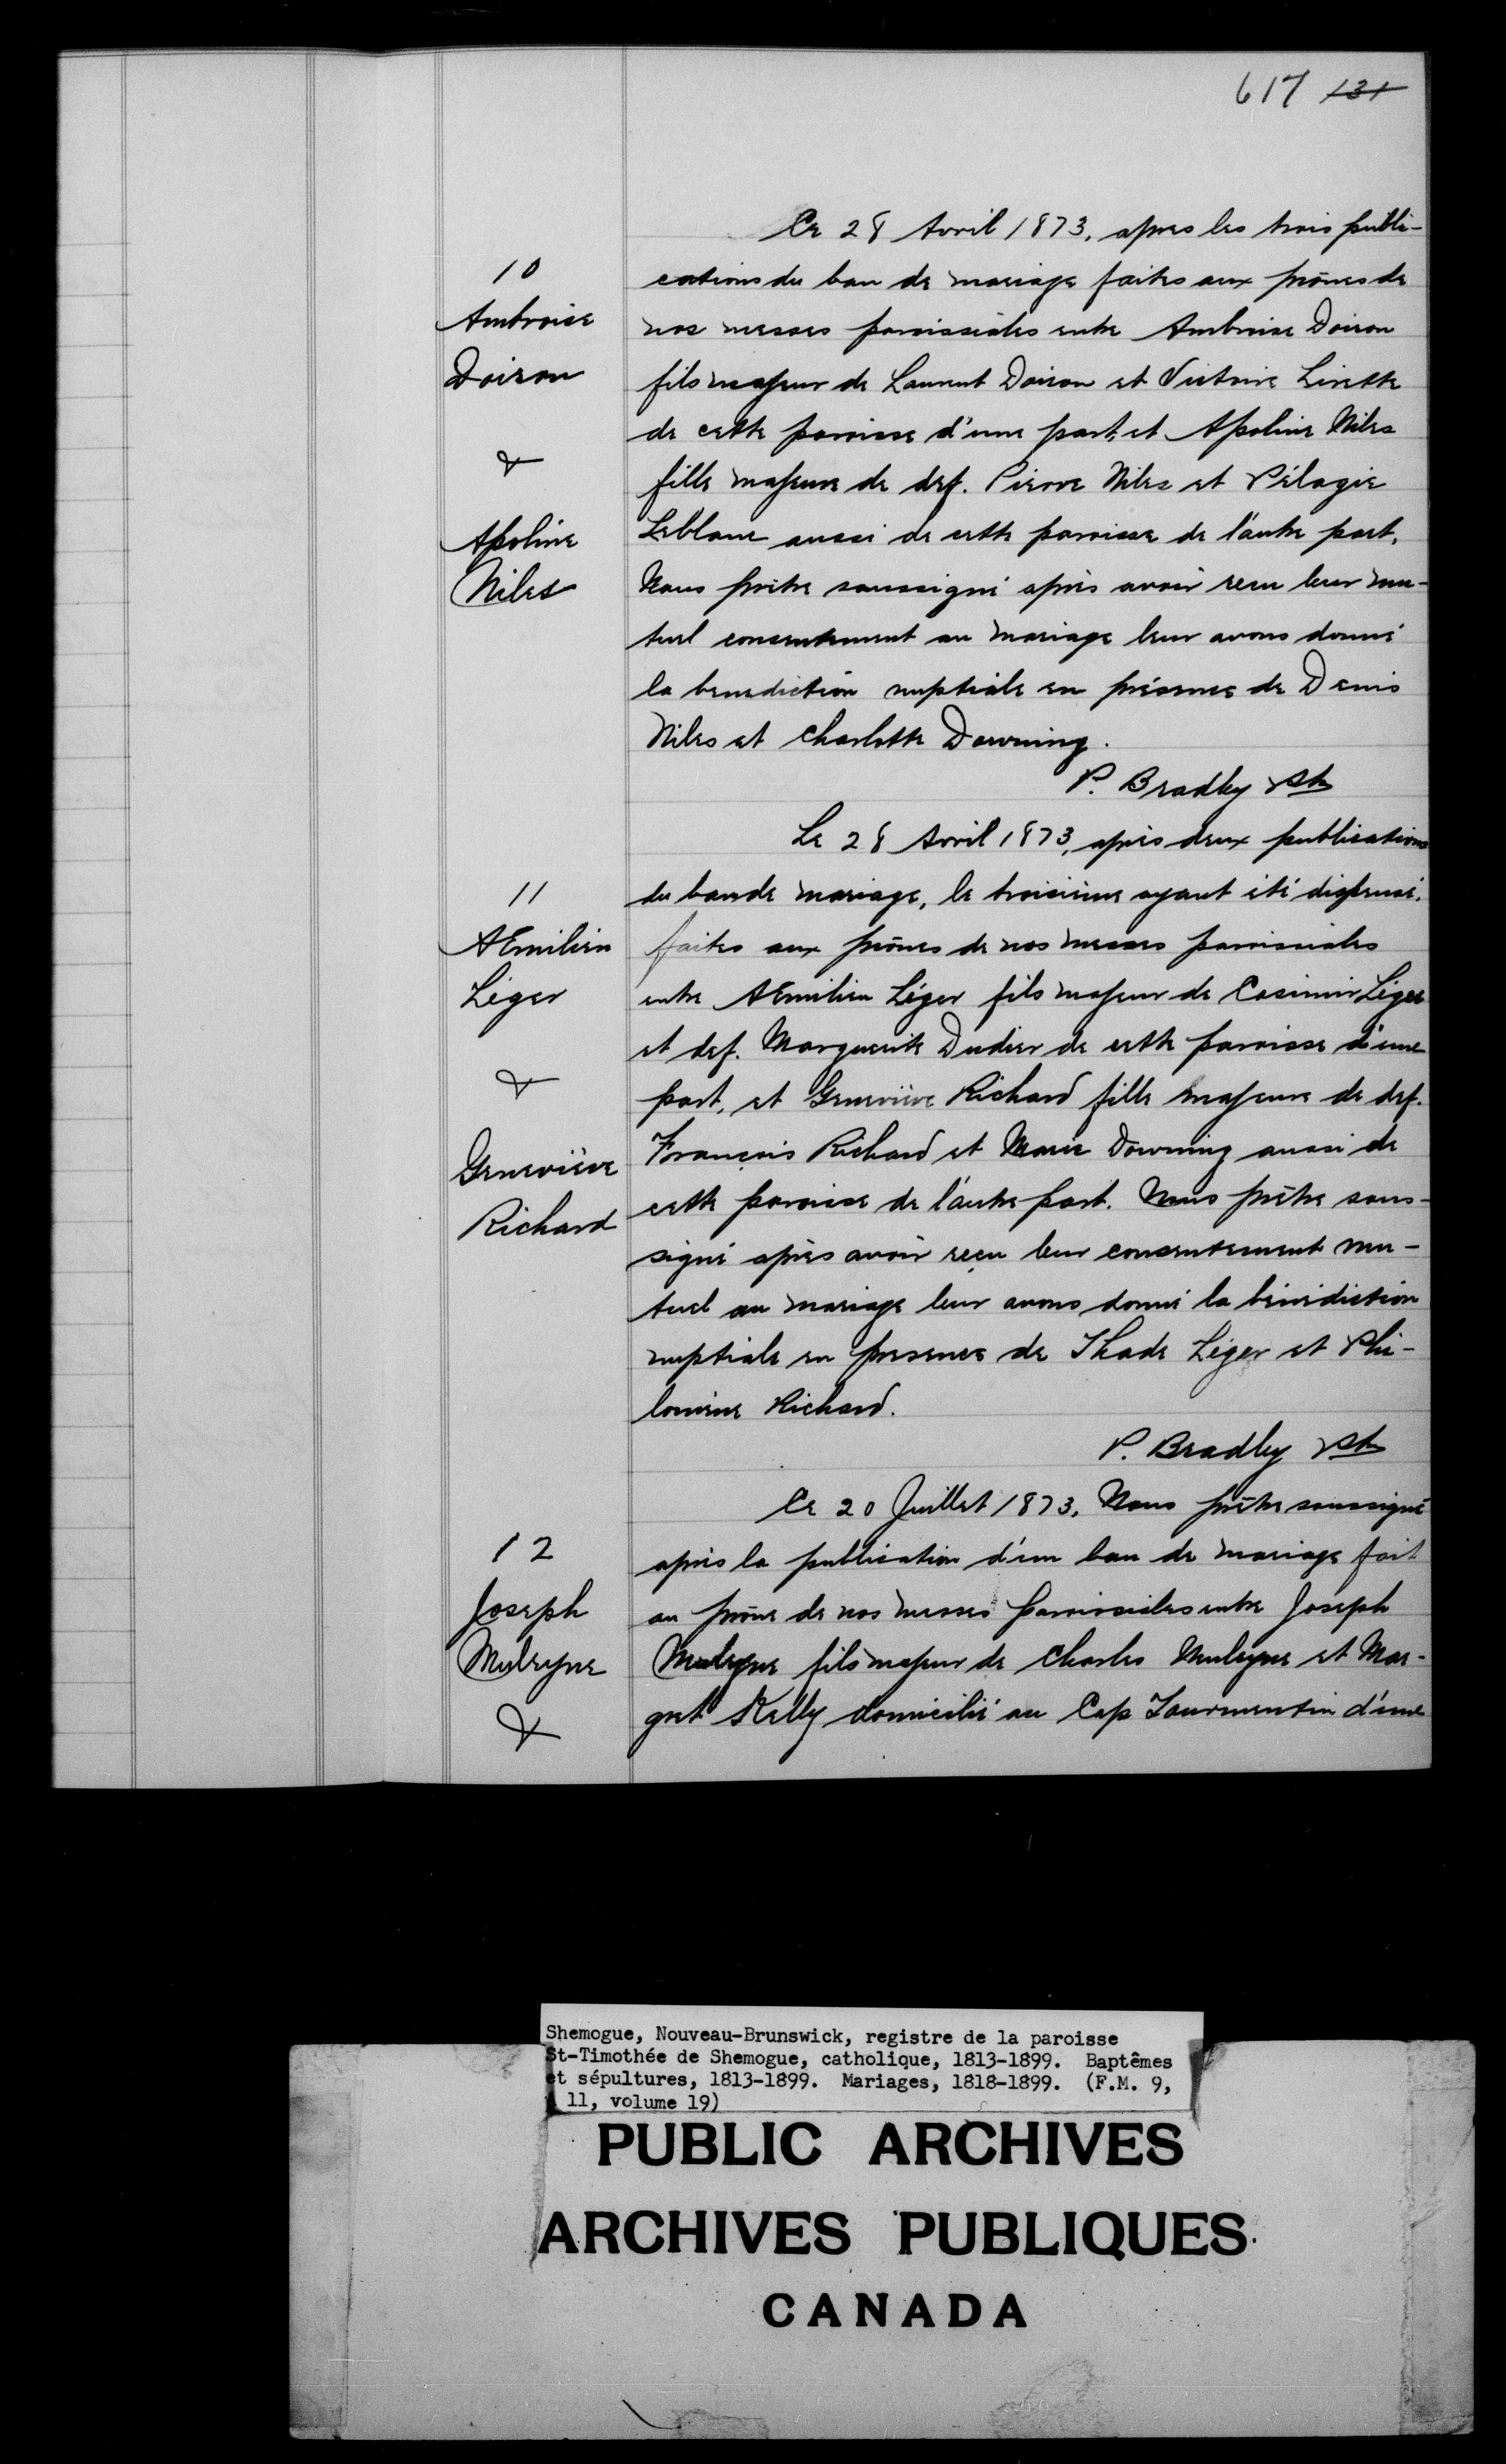 617 131
Ce 28 Avril 1873, apres les trois publi-
10
cations du ban de mariage faites aux prônes de
Ambroise
nos messes paroissiales entre Ambroise Doiron
Doiron
fils majeur de Laurent Doiron et Victoire Lirette
de cette paroisse d'une part, et Apoline Niles
&
fille majeure de def. Pierre Niles et Pélagie
Apoline
Leblanc aussi de cette paroisse de l'autre part,
Niles
Nous prêtre soussigné après avoir recu leur mu-
tuel consentement au mariage leur avons donné
la benediction nuptiale en présence de Denis
Niles et Charlotte Downing.
P. Bradley Ptr
Le 28 Avril 1873, après deux publications
11
du ban de mariage, le troisième ayant été dispensé,
AEmilien
faites aux prônes de nos messes paroissiales
Léger
entre AEmilien Léger fils majeur de Casimir Léger
et def. Marguerite Dudier de cette paroisse d'une
&
part, et Geneviève Richard fille majeure de def.
Geneviève
François Richard et Marie Downing aussi de
Richard
cette paroisse de l'autre part. Nous prêtre sous-
signé après avoir reçu leur consentement mu-
tuel au mariage leur avons donné la bénédiction
nuptiale en presence de Thade Léger et Phi-
lomène Richard.
P. Bradley Ptr
Ce 20 Juillet 1873, Nous prêtre soussigné
12
après la publication d'un ban de mariage fait
Joseph
au prône de nos messes paroissiales entre Joseph
Mulryne
Mulryne fils majeur de Charles Mulryne et Mar-
&
gret Kelly domicilié au Cap Tourmentin d'une
Shemogue, Nouveau-Brunswick, registre de la paroisse
St-Timothée de Shemogue, catholique, 1813-1899. Baptêmes
et sépultures, 1813-1899. Mariages, 1818-1899. (F.M. 9,
11, volume 19)
PUBLIC ARCHIVES
ARCHIVES PUBLIQUES
CANADA